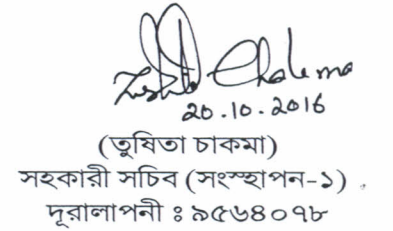 Tushita Chakma
20.10.2016
(তুষিতা চাকমা)
সহকারী সচিব (সংস্হাপন-১)
দূরালাপনী ঃ ৯৫৬৪০৭৮